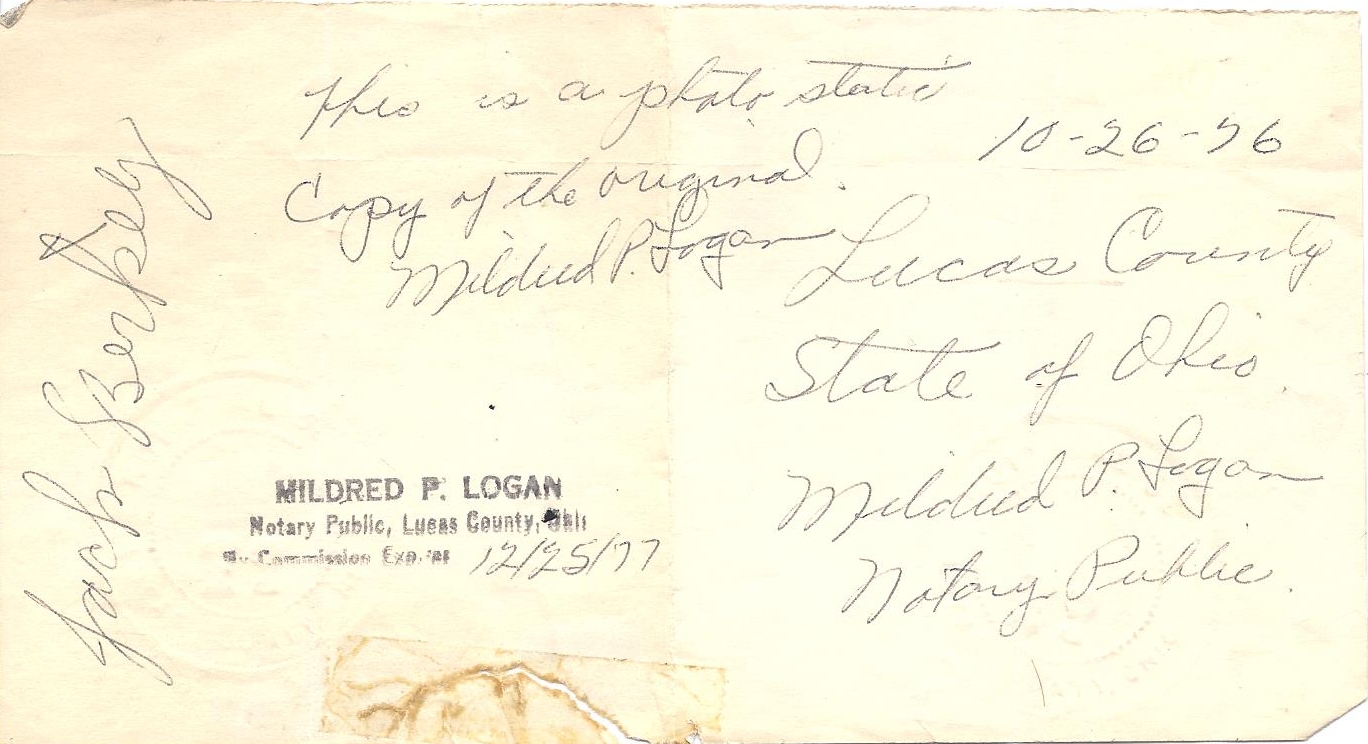 This is a photo static
10-26-76
Copy of the original.
Mildred P. Logan
Lucas County
State of Ohio.
Mildred P. Logan
Notary Public.
MILDRED P. LOGAN
Notary Public, Lucas County, Ohio
My Commission Expires 12/25/77